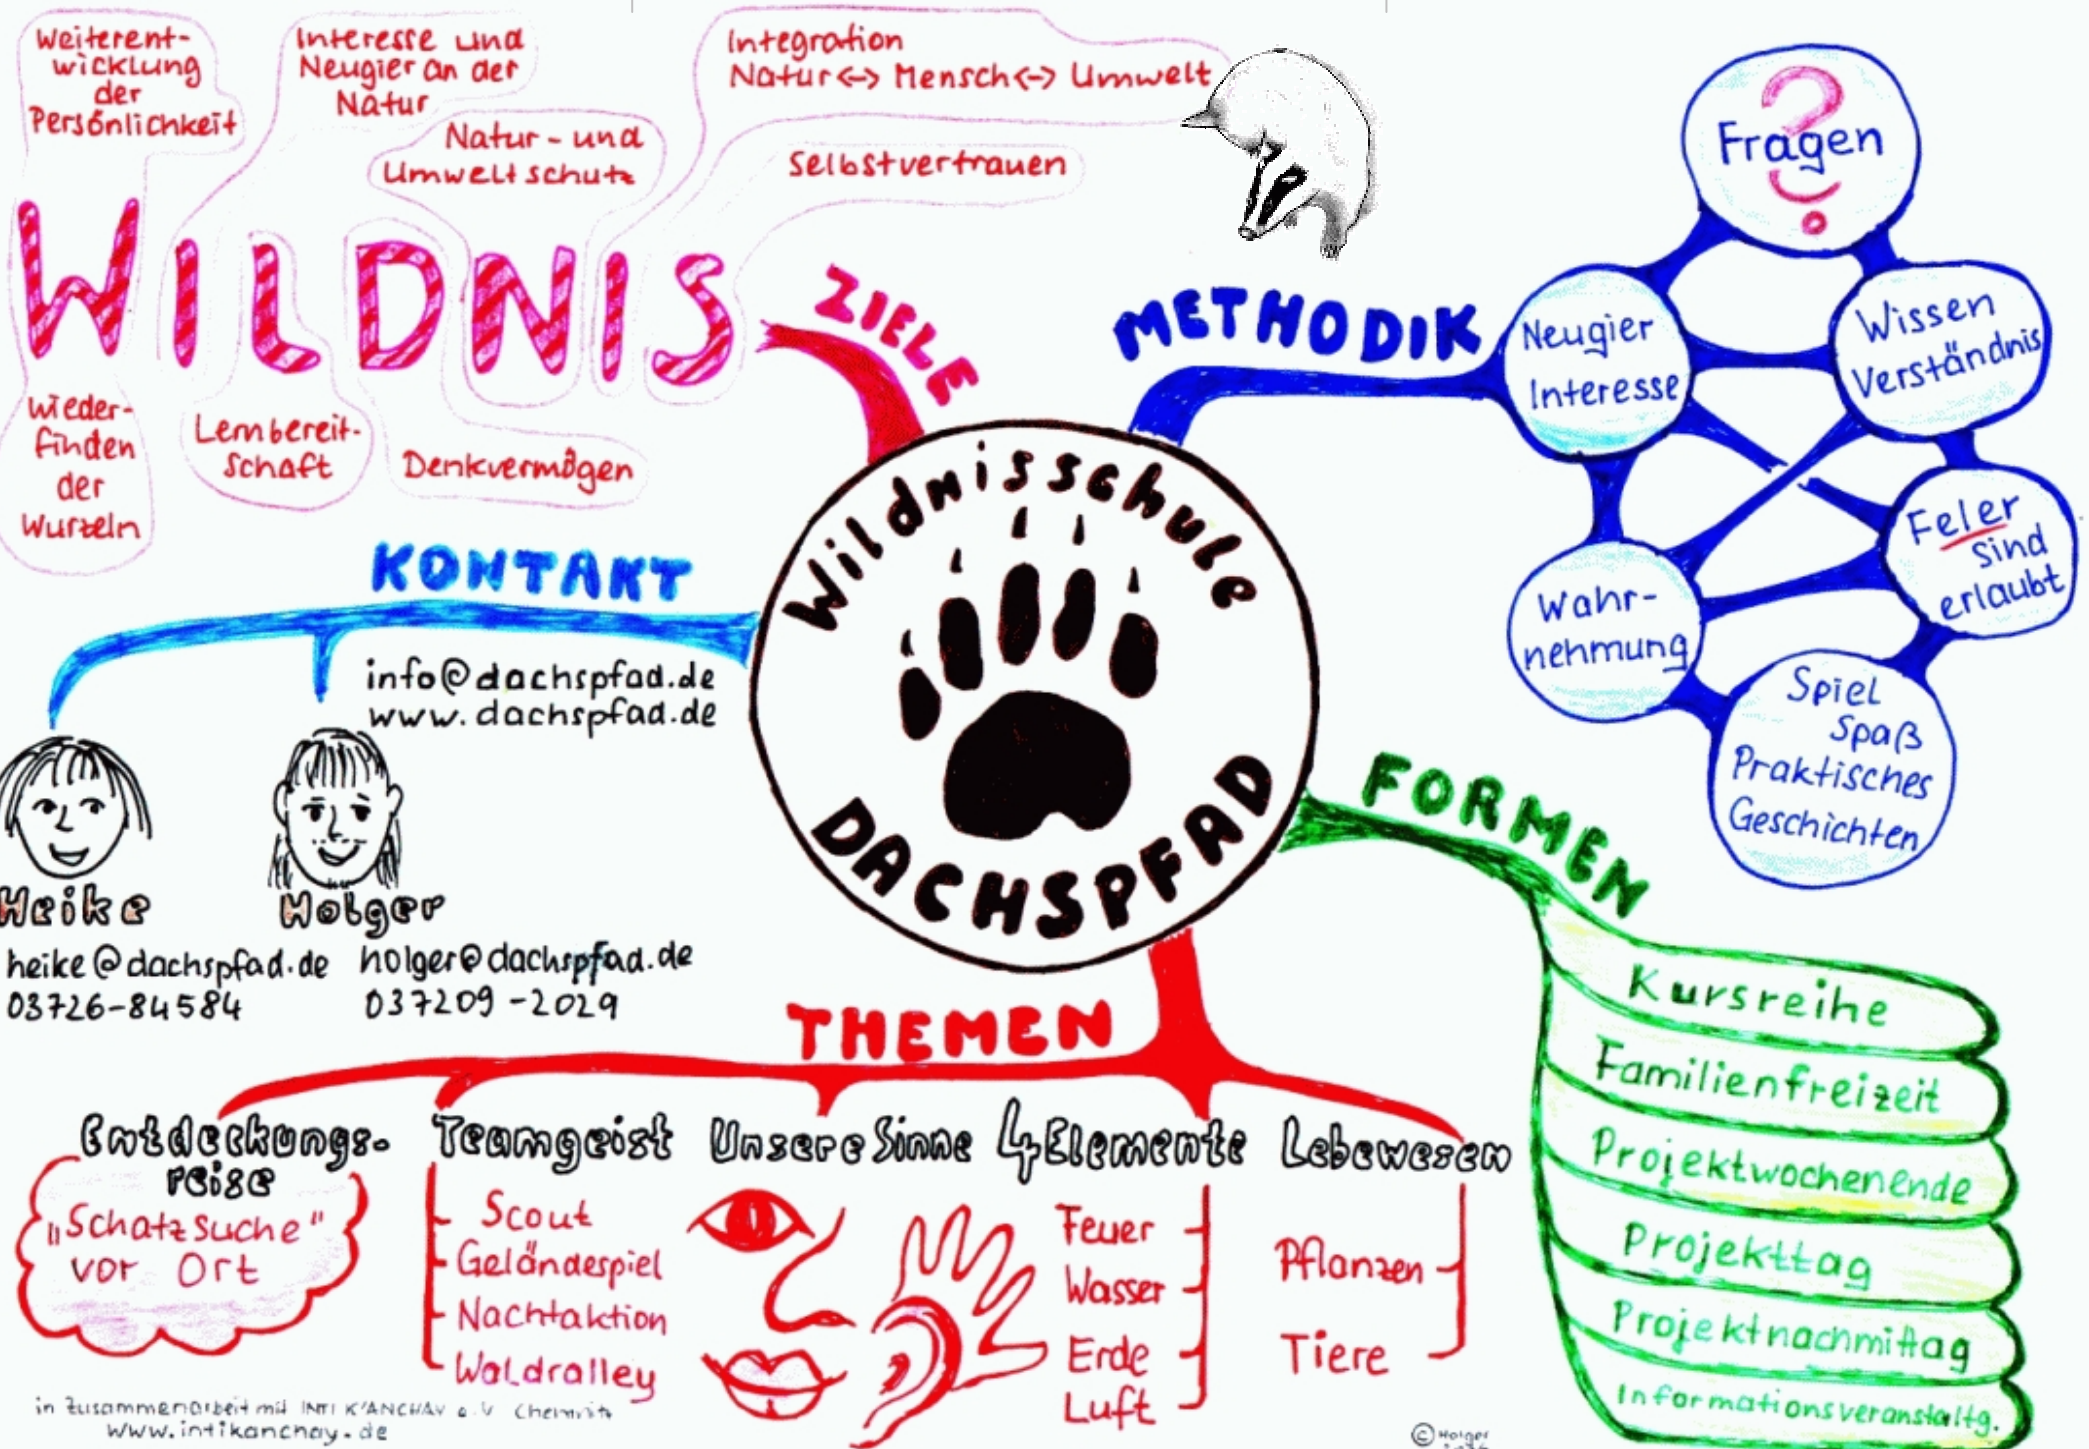 Weiterent-
wicklung
der
Persönlichkeit
Interesse und
Neugier an der
Natur
Natur- und
Umweltschutz
Integration
Natur <-> Mensch <-> Umwelt
Selbstvertrauen
WILDNIS
Wieder-
finden
der
Wurzeln
Lernbereit-
schaft
Denkvermögen
ZIELE
METHODIK
?
Fragen
?
Neugier
Interesse
Wissen
Verständnis
Feler
sind
erlaubt
Wahr-
nehmung
Spiel
Spaß
Praktisches
Geschichten
Wildnisschule
DACHSPFAD
KONTAKT
info@dachspfad.de
www.dachspfad.de
Heike
heike@dachspfad.de
03726-84584
Holger
holger@dachspfad.de
037209-2029
FORMEN
Kursreihe
Familienfreizeit
Projektwochenende
Projekttag
Projektnachmittag
Informationsveranstaltg.
THEMEN
Entdeckungs-
reise
„Schatzsuche"
vor Ort
Teamgeist
Scout
Geländespiel
Nachtaktion
Waldralley
Unsere Sinne
4 Elemente
Feuer
Wasser
Erde
Luft
Lebewesen
Pflanzen
Tiere
in Zusammenarbeit mit INTI K'ANCHAY e.V Chemnitz
www.intikanchay.de
© Holger